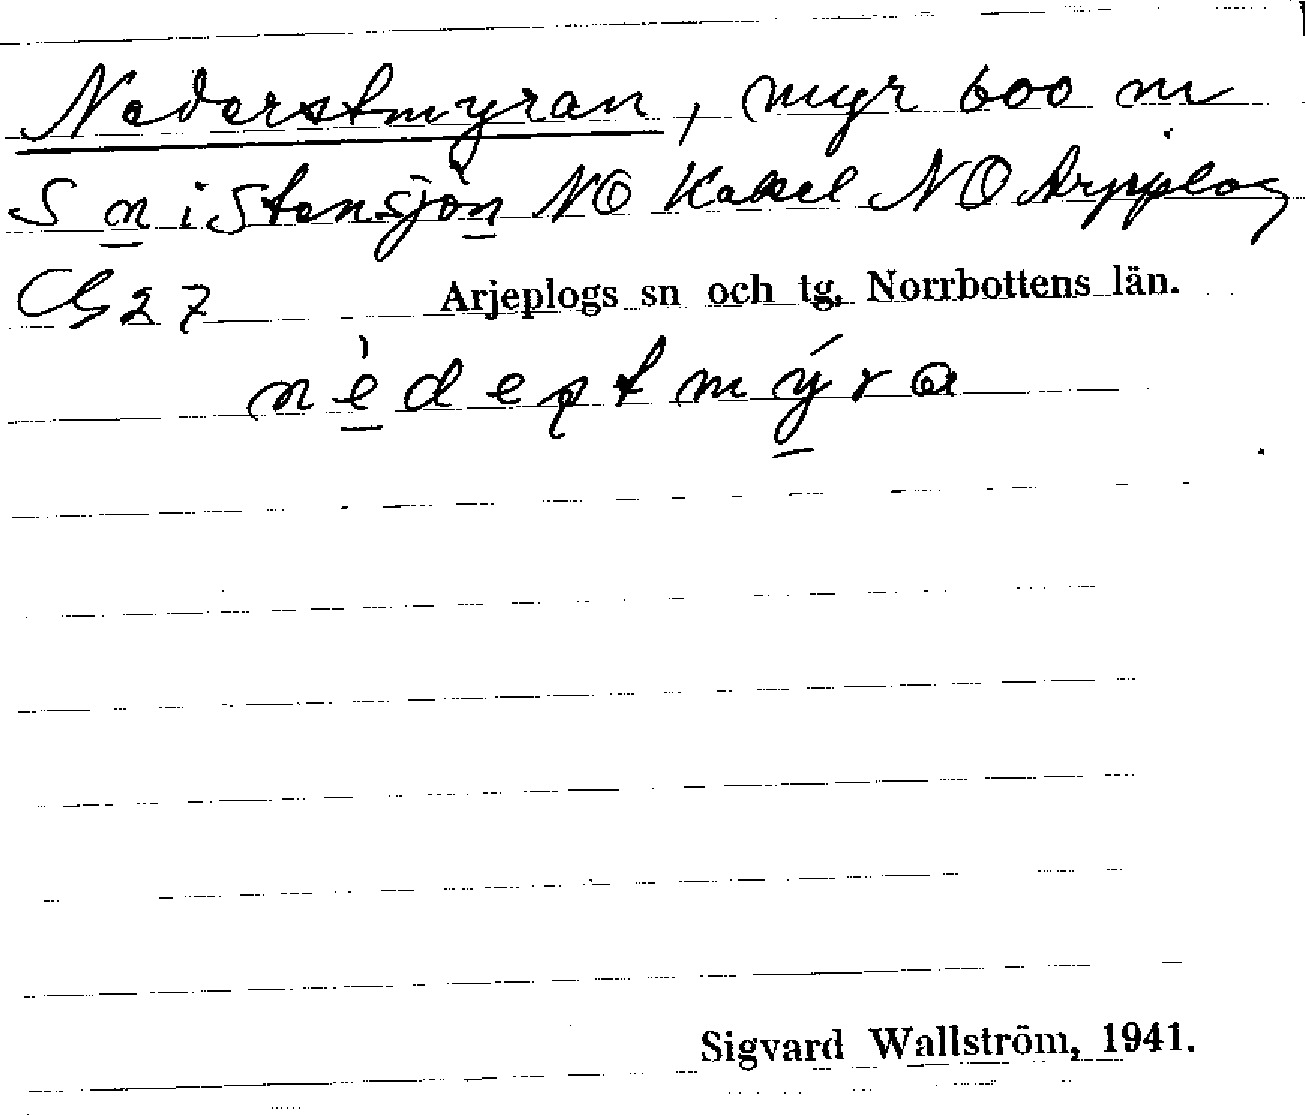 Nederstmyran, myr 600 m
S n i Stensjön NO Kakel NO Arjeplog
Cg 27 Arjeplogs sn och tg, Norrbottens län.
nèdeʂtmýra
Sigvard Wallström, 1941.